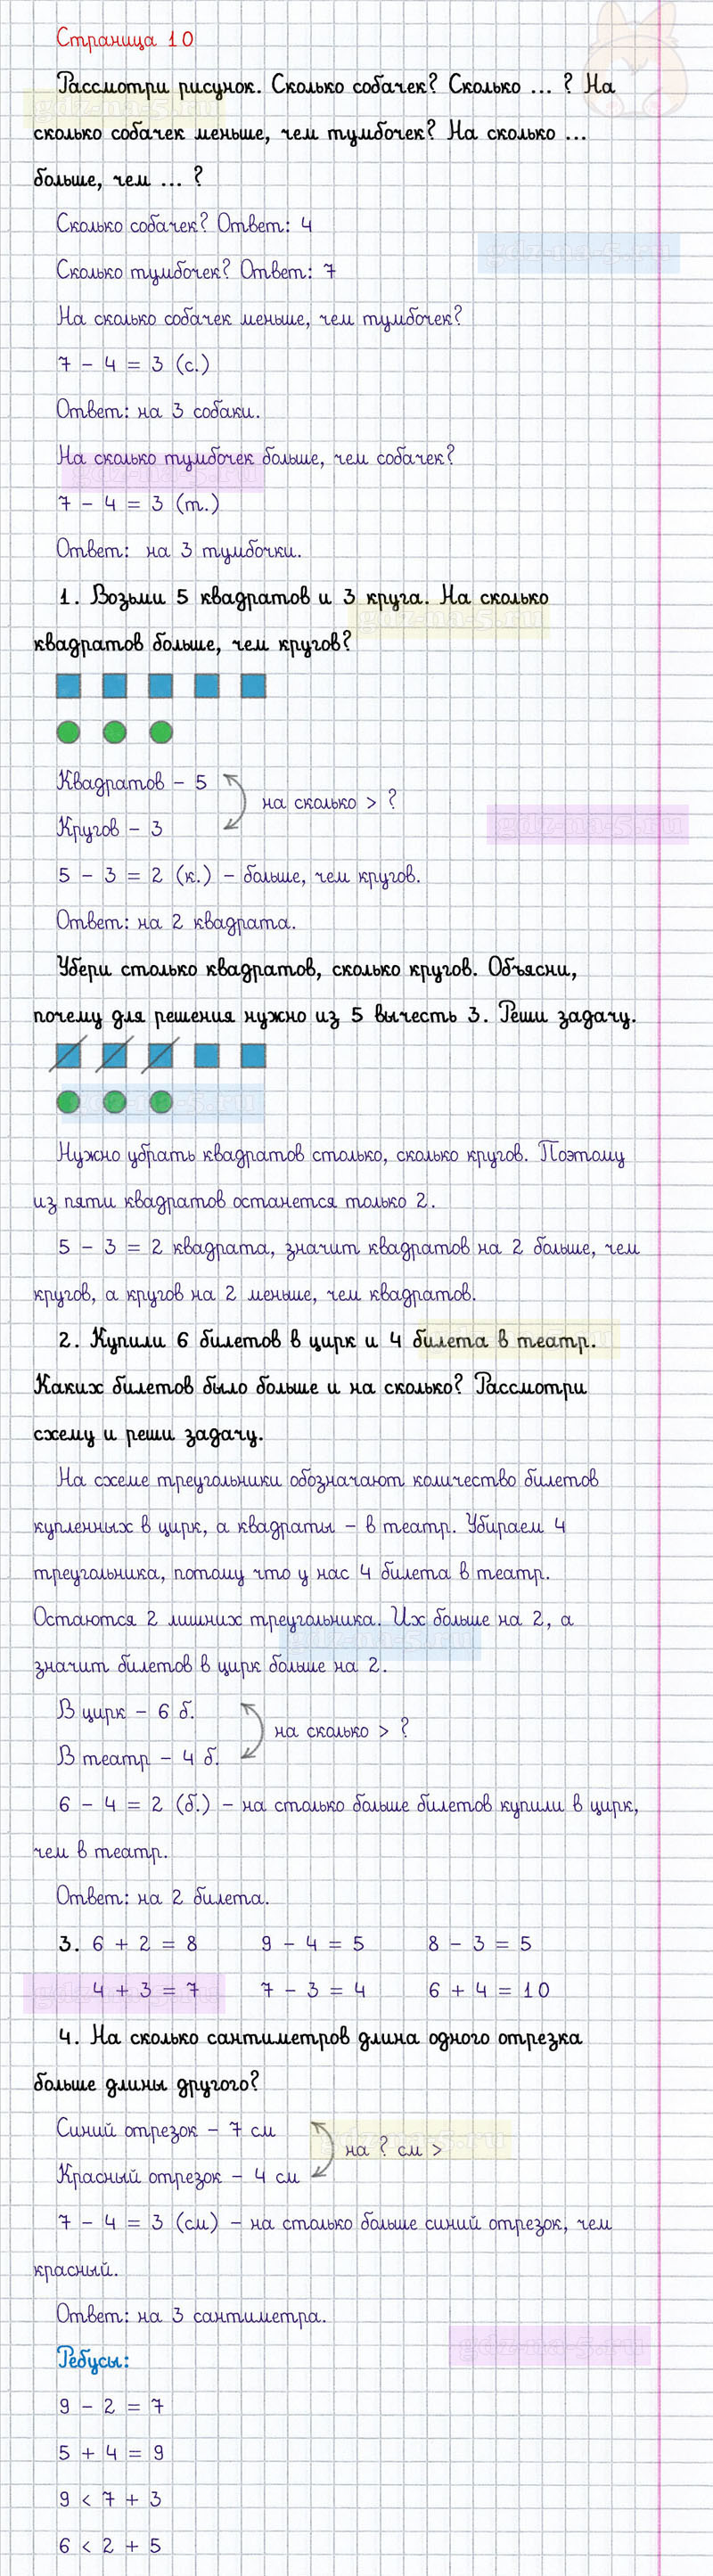 Страница 10
Рассмотри рисунок. Сколько собачек? Сколько ... ? На
сколько собачек меньше, чем тумбочек? На сколько ...
больше, чем ... ?
Сколько собачек? Ответ: 4
gdz-na-5.ru
Сколько тумбочек? Ответ: 7
На сколько собачек меньше, чем тумбочек?
7 - 4 = 3 (с.)
Ответ: на 3 собаки.
На сколько тумбочек больше, чем собачек?
gdz-na-5.ru
7 - 4 = 3 (т.)
Ответ: на 3 тумбочки.
1. Возьми 5 квадратов и 3 круга. На сколько
gdz-na-5.ru
квадратов больше, чем кругов?
Квадратов - 5
на сколько > ?
gdz-na-5.ru
Кругов - 3
5 - 3 = 2 (к.) - больше, чем кругов.
Ответ: на 2 квадрата.
Убери столько квадратов, сколько кругов. Объясни,
почему для решения нужно из 5 вычесть 3. Реши задачу.
gdz-na-5.ru
Нужно убрать квадратов столько, сколько кругов. Поэтому
из пяти квадратов останется только 2.
5 - 3 = 2 квадрата, значит квадратов на 2 больше, чем
кругов, а кругов на 2 меньше, чем квадратов.
2. Купили 6 билетов в цирк и 4 билета в театр.
Каких билетов было больше и на сколько? Рассмотри
схему и реши задачу.
На схеме треугольники обозначают количество билетов
купленных в цирк, а квадраты - в театр. Убираем 4
треугольника, потому что у нас 4 билета в театр.
Остаются 2 лишних треугольника. Их больше на 2, а
gdz-na-5.ru
значит билетов в цирк больше на 2.
В цирк - 6 б.
на сколько > ?
В театр - 4 б.
6 - 4 = 2 (б.) - на столько больше билетов купили в цирк,
чем в театр.
Ответ: на 2 билета.
3. 6 + 2 = 8 9 - 4 = 5 8 - 3 = 5
4 + 3 = 7 7 - 3 = 4 6 + 4 = 10
4. На сколько сантиметров длина одного отрезка
больше длины другого?
Синий отрезок - 7 см
на ? см >
gdz-na-5.ru
Красный отрезок - 4 см
7 - 4 = 3 (см) - на столько больше синий отрезок, чем
красный.
Ответ: на 3 сантиметра.
gdz-na-5.ru
Ребусы:
9 - 2 = 7
5 + 4 = 9
9 < 7 + 3
6 < 2 + 5